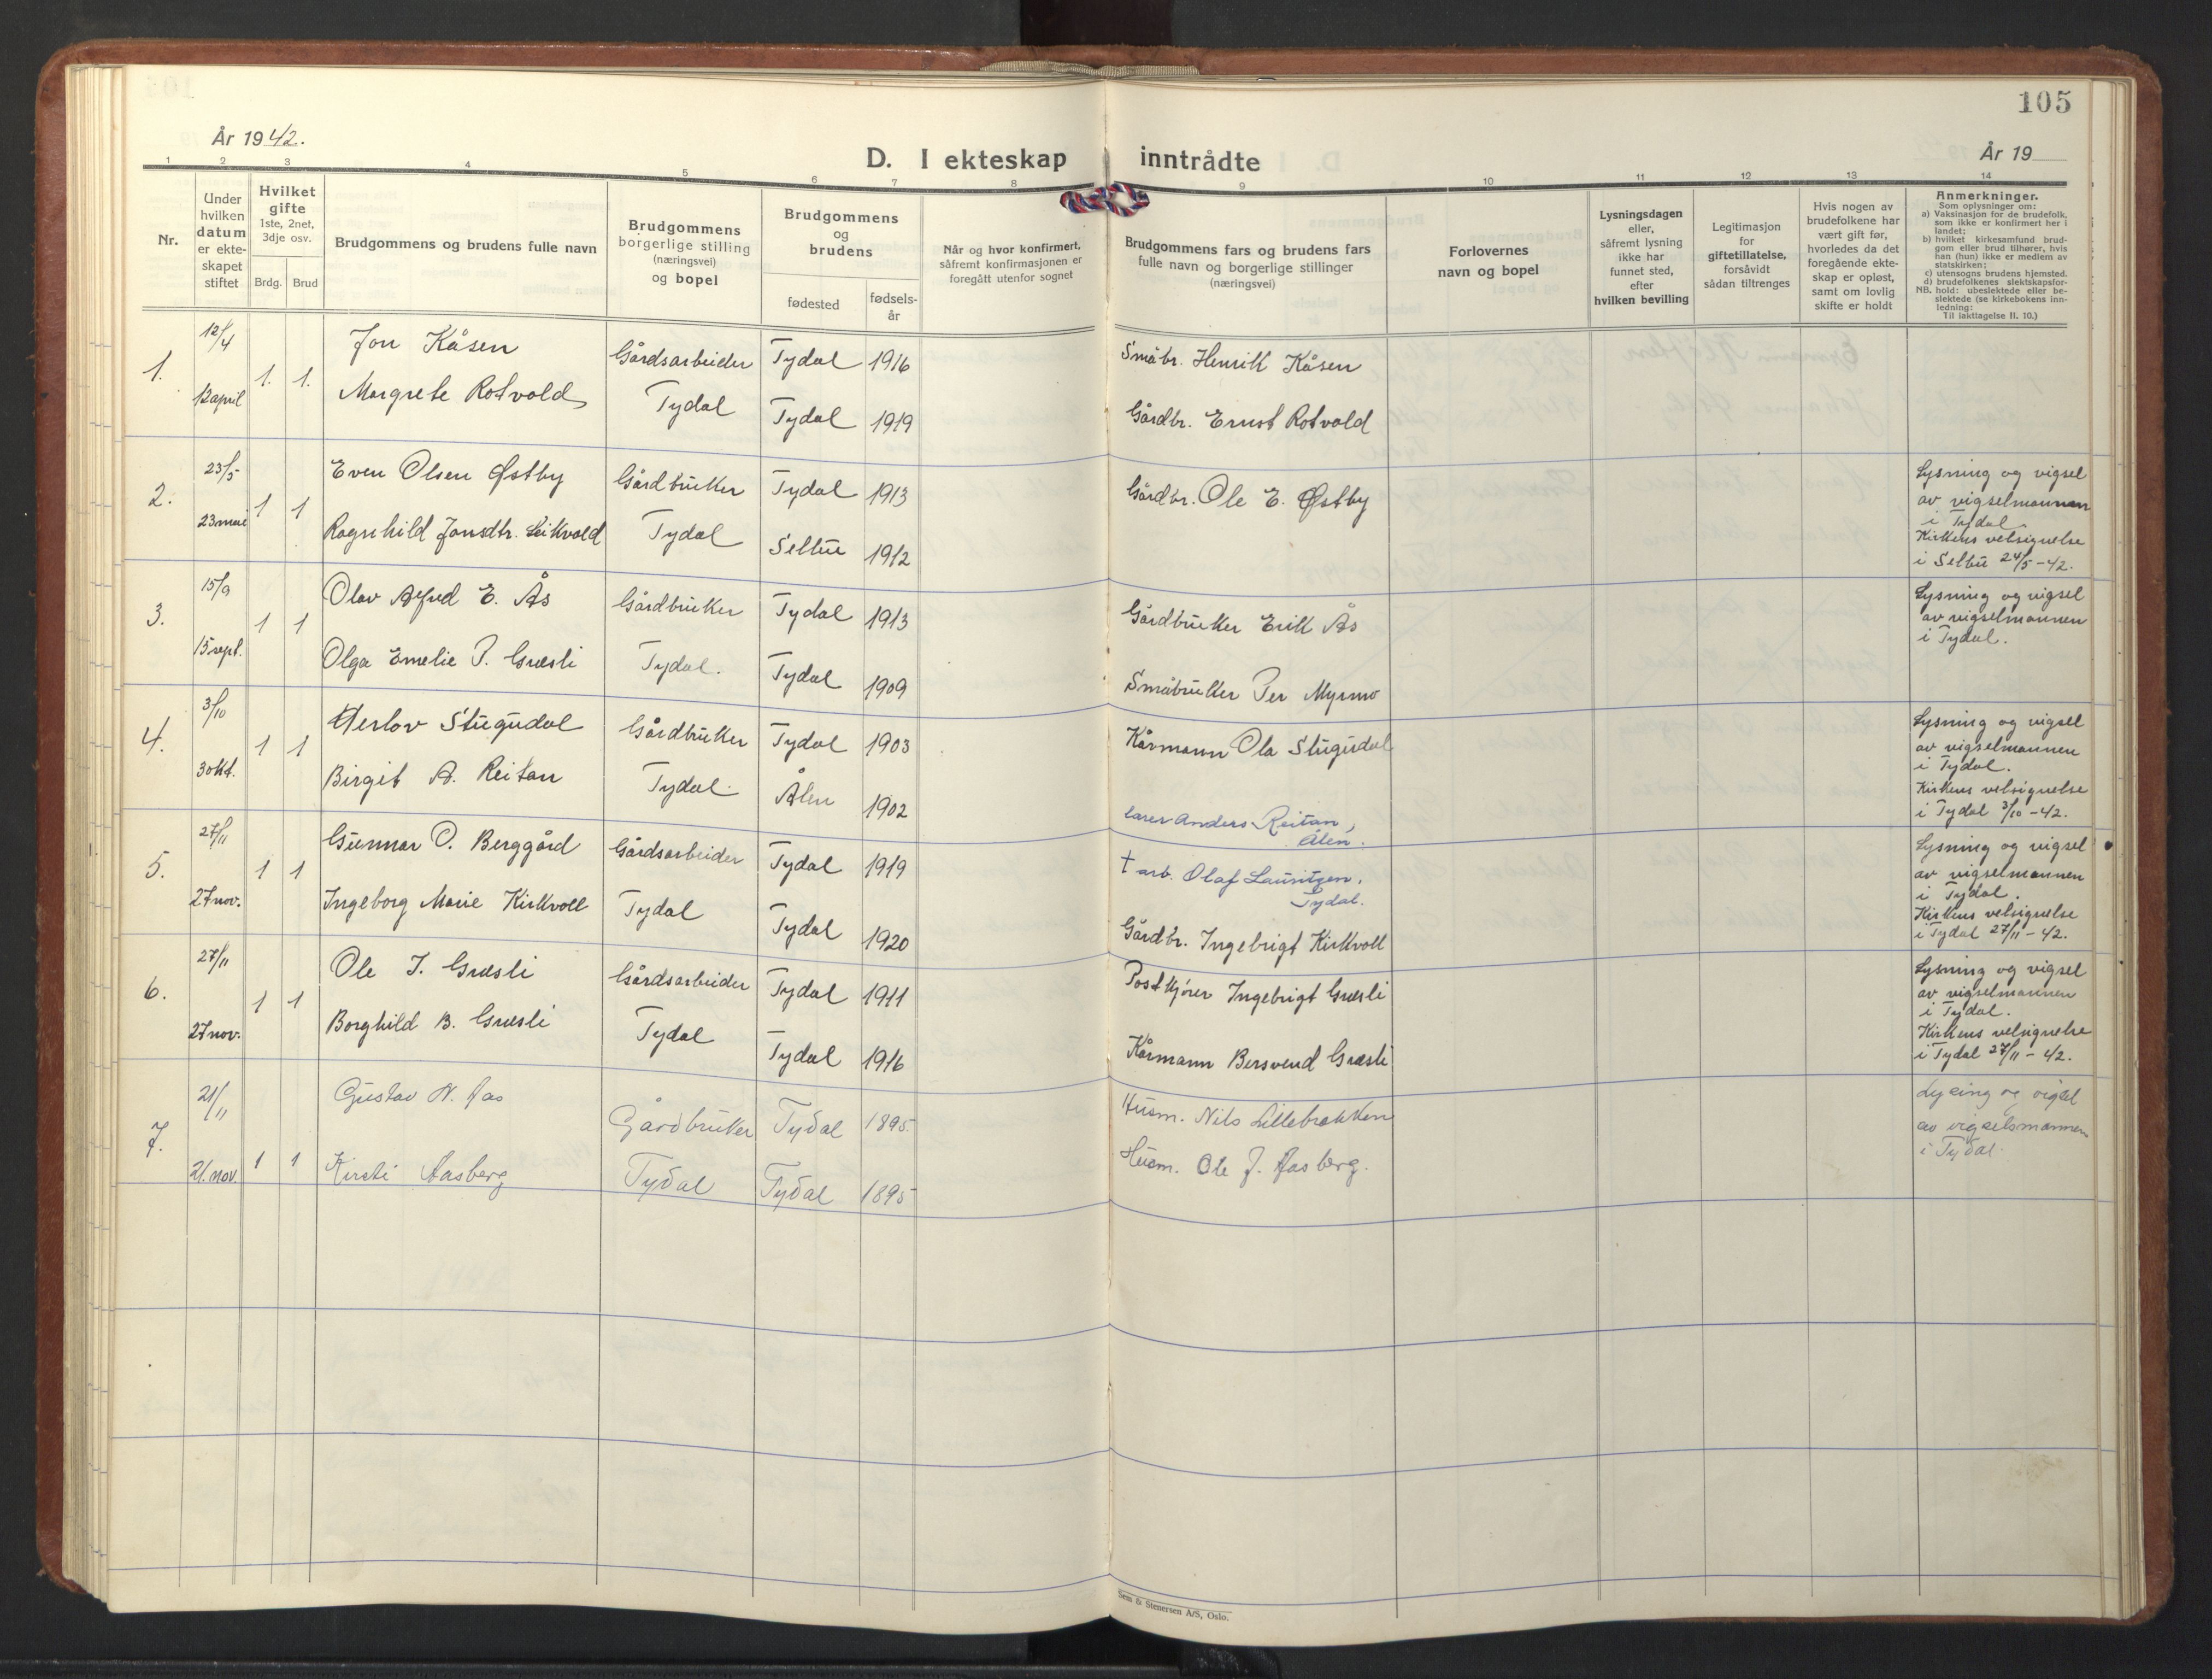 105
År 1942.
D. I ekteskap inntrådte
År 19
1 2 3 4 5 6 7 8 9 10 11 12 13 14
Nr.
Under
hvilken
datum
er ekte-
skapet
stiftet
Hvilket
gifte
1ste, 2net,
3dje osv.
Brdg. Brud
Brudgommens og brudens fulle navn
Brudgommens
borgerlige stilling
(næringsvei)
og bopel
Brudgommens
og
brudens
fødested
fødsels-
år
Når og hvor konfirmert,
såfremt konfirmasjonen er
foregått utenfor sognet
Brudgommens fars og brudens fars
fulle navn og borgerlige stillinger
(næringsvei)
Forlovernes
navn og bopel
Lysningsdagen
eller,
såfremt lysning
ikke har
funnet sted,
efter
hvilken bevilling
Legitimasjon
for
giftetillatelse,
forsåvidt
sådan tiltrenges
Hvis nogen av
brudefolkene har
vært gift før,
hvorledes da det
foregående ekte-
skap er opløst,
samt om lovlig
skifte er holdt
Anmerkninger.
Som oplysninger om:
a) Vaksinasjon for de brudefolk,
som ikke er konfirmert her i
landet;
b) hvilket kirkesamfund brud-
gom eller brud tilhører, hvis
han (hun) ikke er medlem av
statskirken;
c) utensogns brudens hjemsted.
d) brudefolkenes slektskapsfor-
NB. hold: ubeslektede eller be-
slektede (se kirkebokens inn-
ledning:
Til iakttagelse II. 10.)
1. 12/4 1. 1. Jon Kåsen Gårdsarbeider Tydal 1916 Småbr. Henrik Kåsen
12 april Margrete Rotvold Tydal Tydal 1919 Gårdbr. Ernst Rotvold
2. 23/5 1 1 Even Olsen Østby Gårdbruker Tydal 1913 Gårdbr. Ole E. Østby
23 mai Ragnhild Jonsdtr. Leikvold Tydal Selbu 1912
Lysning og vigsel
av vigselmannen
i Tydal.
Kirkens velsignelse
i Selbu 24/5-42.
3. 15/9 1 1 Olav Alfred E. Ås Gårdbruker Tydal 1913 Gårdbruker Erik Ås
15 sept. Olga Emelie P. Græsli Tydal. Tydal 1909 Småbruker Per Myrmo
Lysning og vigsel
av vigselmannen
i Tydal.
4. 3/10 1 1 Herlov Stugudal Gårdbruker Tydal 1903 Kårmann Ola Stugudal
3 okt. Birgit A. Reitan Tydal. Ålen 1902 lærer Anders Reitan,
Ålen.
Lysning og vigsel
av vigselmannen
i Tydal.
Kirkens velsignelse
i Tydal 3/10-42.
5. 27/11 1 1 Gunnar O. Berggård Gårdsarbeider Tydal 1919 † arb. Olaf Lauritzen,
Tydal.
27 nov. Ingeborg Marie Kirkvoll Tydal Tydal 1920 Gårdbr. Ingebrigt Kirkvoll
Lysning og vigsel
av vigselmannen
i Tydal.
Kirkens velsignelse
i Tydal 27/11-42.
6. 27/11 1 1 Ole I. Græsli Gårdsarbeider Tydal 1911 Postkjører Ingebrigt Græsli
27 nov. Borghild B. Græsli Tydal Tydal 1916 Kårmann Bersvend Græsli
Lysning og vigsel
av vigselmannen
i Tydal.
Kirkens velsignelse
i Tydal 27/11-42.
7. 21/11 1 1 Gustav N. Aas Gårdbruker Tydal 1895. Husm. Nils Lillebrokken
21. nov. Kirsti Aasberg Tydal Tydal 1895 Husm. Ole J. Aasberg.
Lysing og vigsel
av vigselsmannen
i Tydal.
Sem & Stenersen A/S, Oslo.